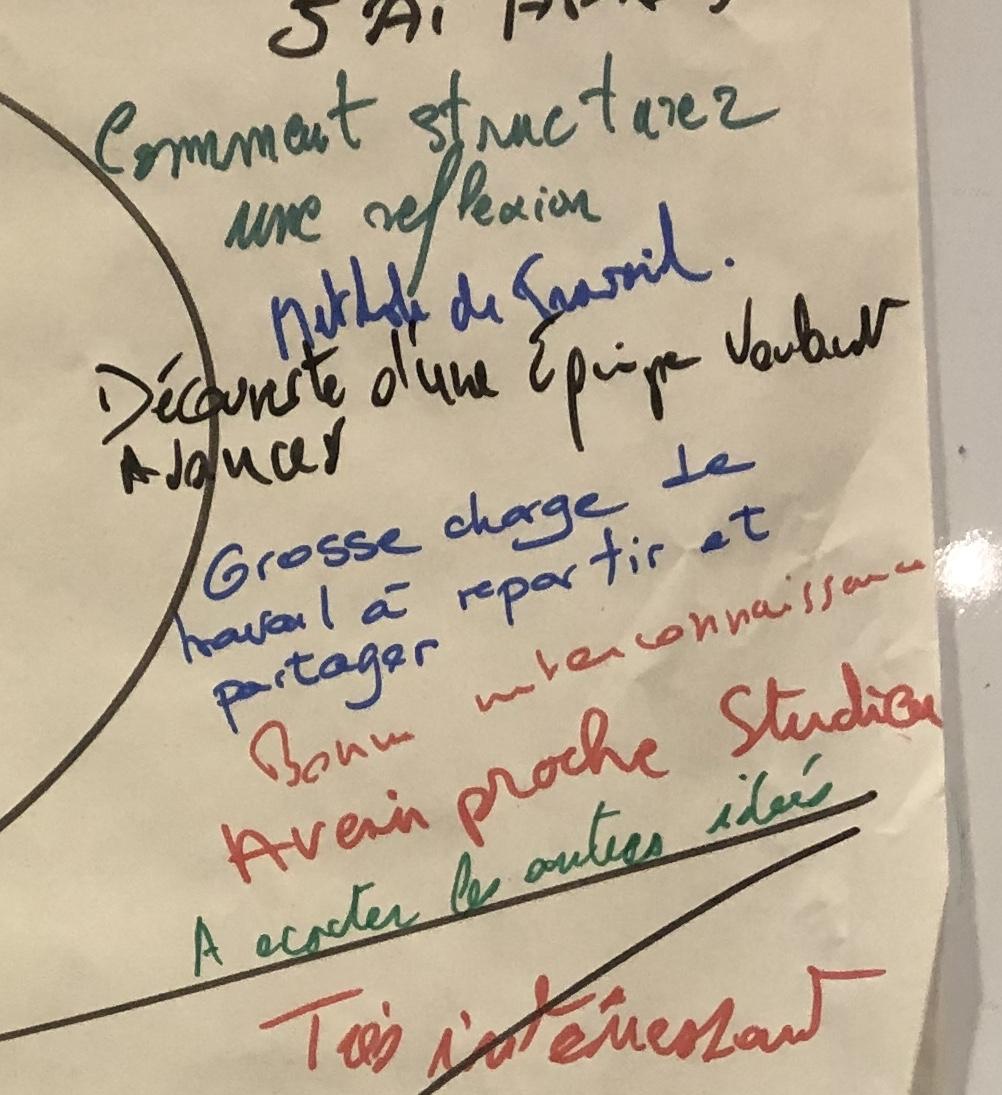 J'AI
Comment structurez
une reflexion
Methode de Travail.
Découverte d'une Equipe Voulant
Avancer
Grosse charge de
travail à repartir et
partager
Bonne interconnaissance
Avenir proche Studieu
A ecouter les autres idées
Très intéressant